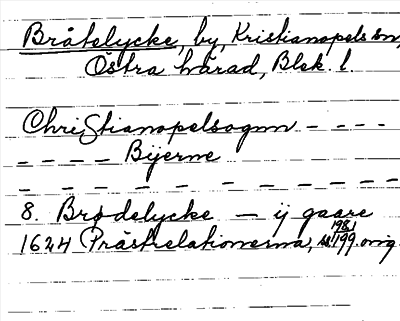 Bråtelycke, by, Kristianopels sn,
Östra härad, Blek. l.
Christianopelsognn - - - -
- - - - Bijerne
- - - - - - - - - - - -
8. Brødelycke — ij gaare
1624 Prästrelationerna, s. 199 orig.
198